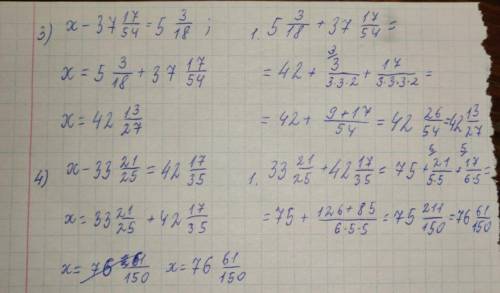 3) x - 37 17/54 = 5 3/18 ;
x = 5 3/18 + 37 17/54
x = 42 13/27
1. 5 3/18 + 37 17/54 =
= 42 + 3/(3·3·2) + 17/(3·3·3·2) =
= 42 + (9+17)/54 = 42 26/54 = 42 13/27
4) x - 33 21/25 = 42 17/35
x = 33 21/25 + 42 17/35
x = 76 61/150
1. 33 21/25 + 42 17/35 = 75 + 21/(5·5) + 17/(6·5) =
= 75 + (126+85)/(6·5·5) = 75 211/150 = 76 61/150